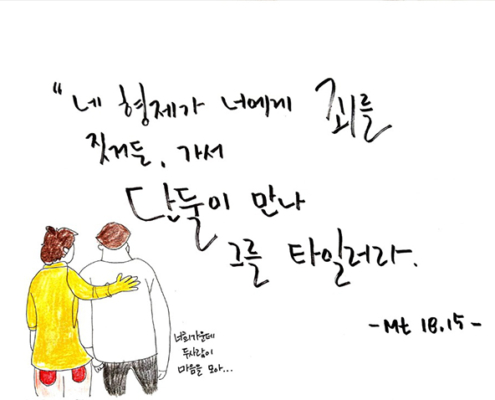 "네 형제가 너에게 죄를
짓거든, 가서
단둘이 만나
그를 타일러라.
-Mt 18.15-
너희가운데
두사람이
마음을 모아...